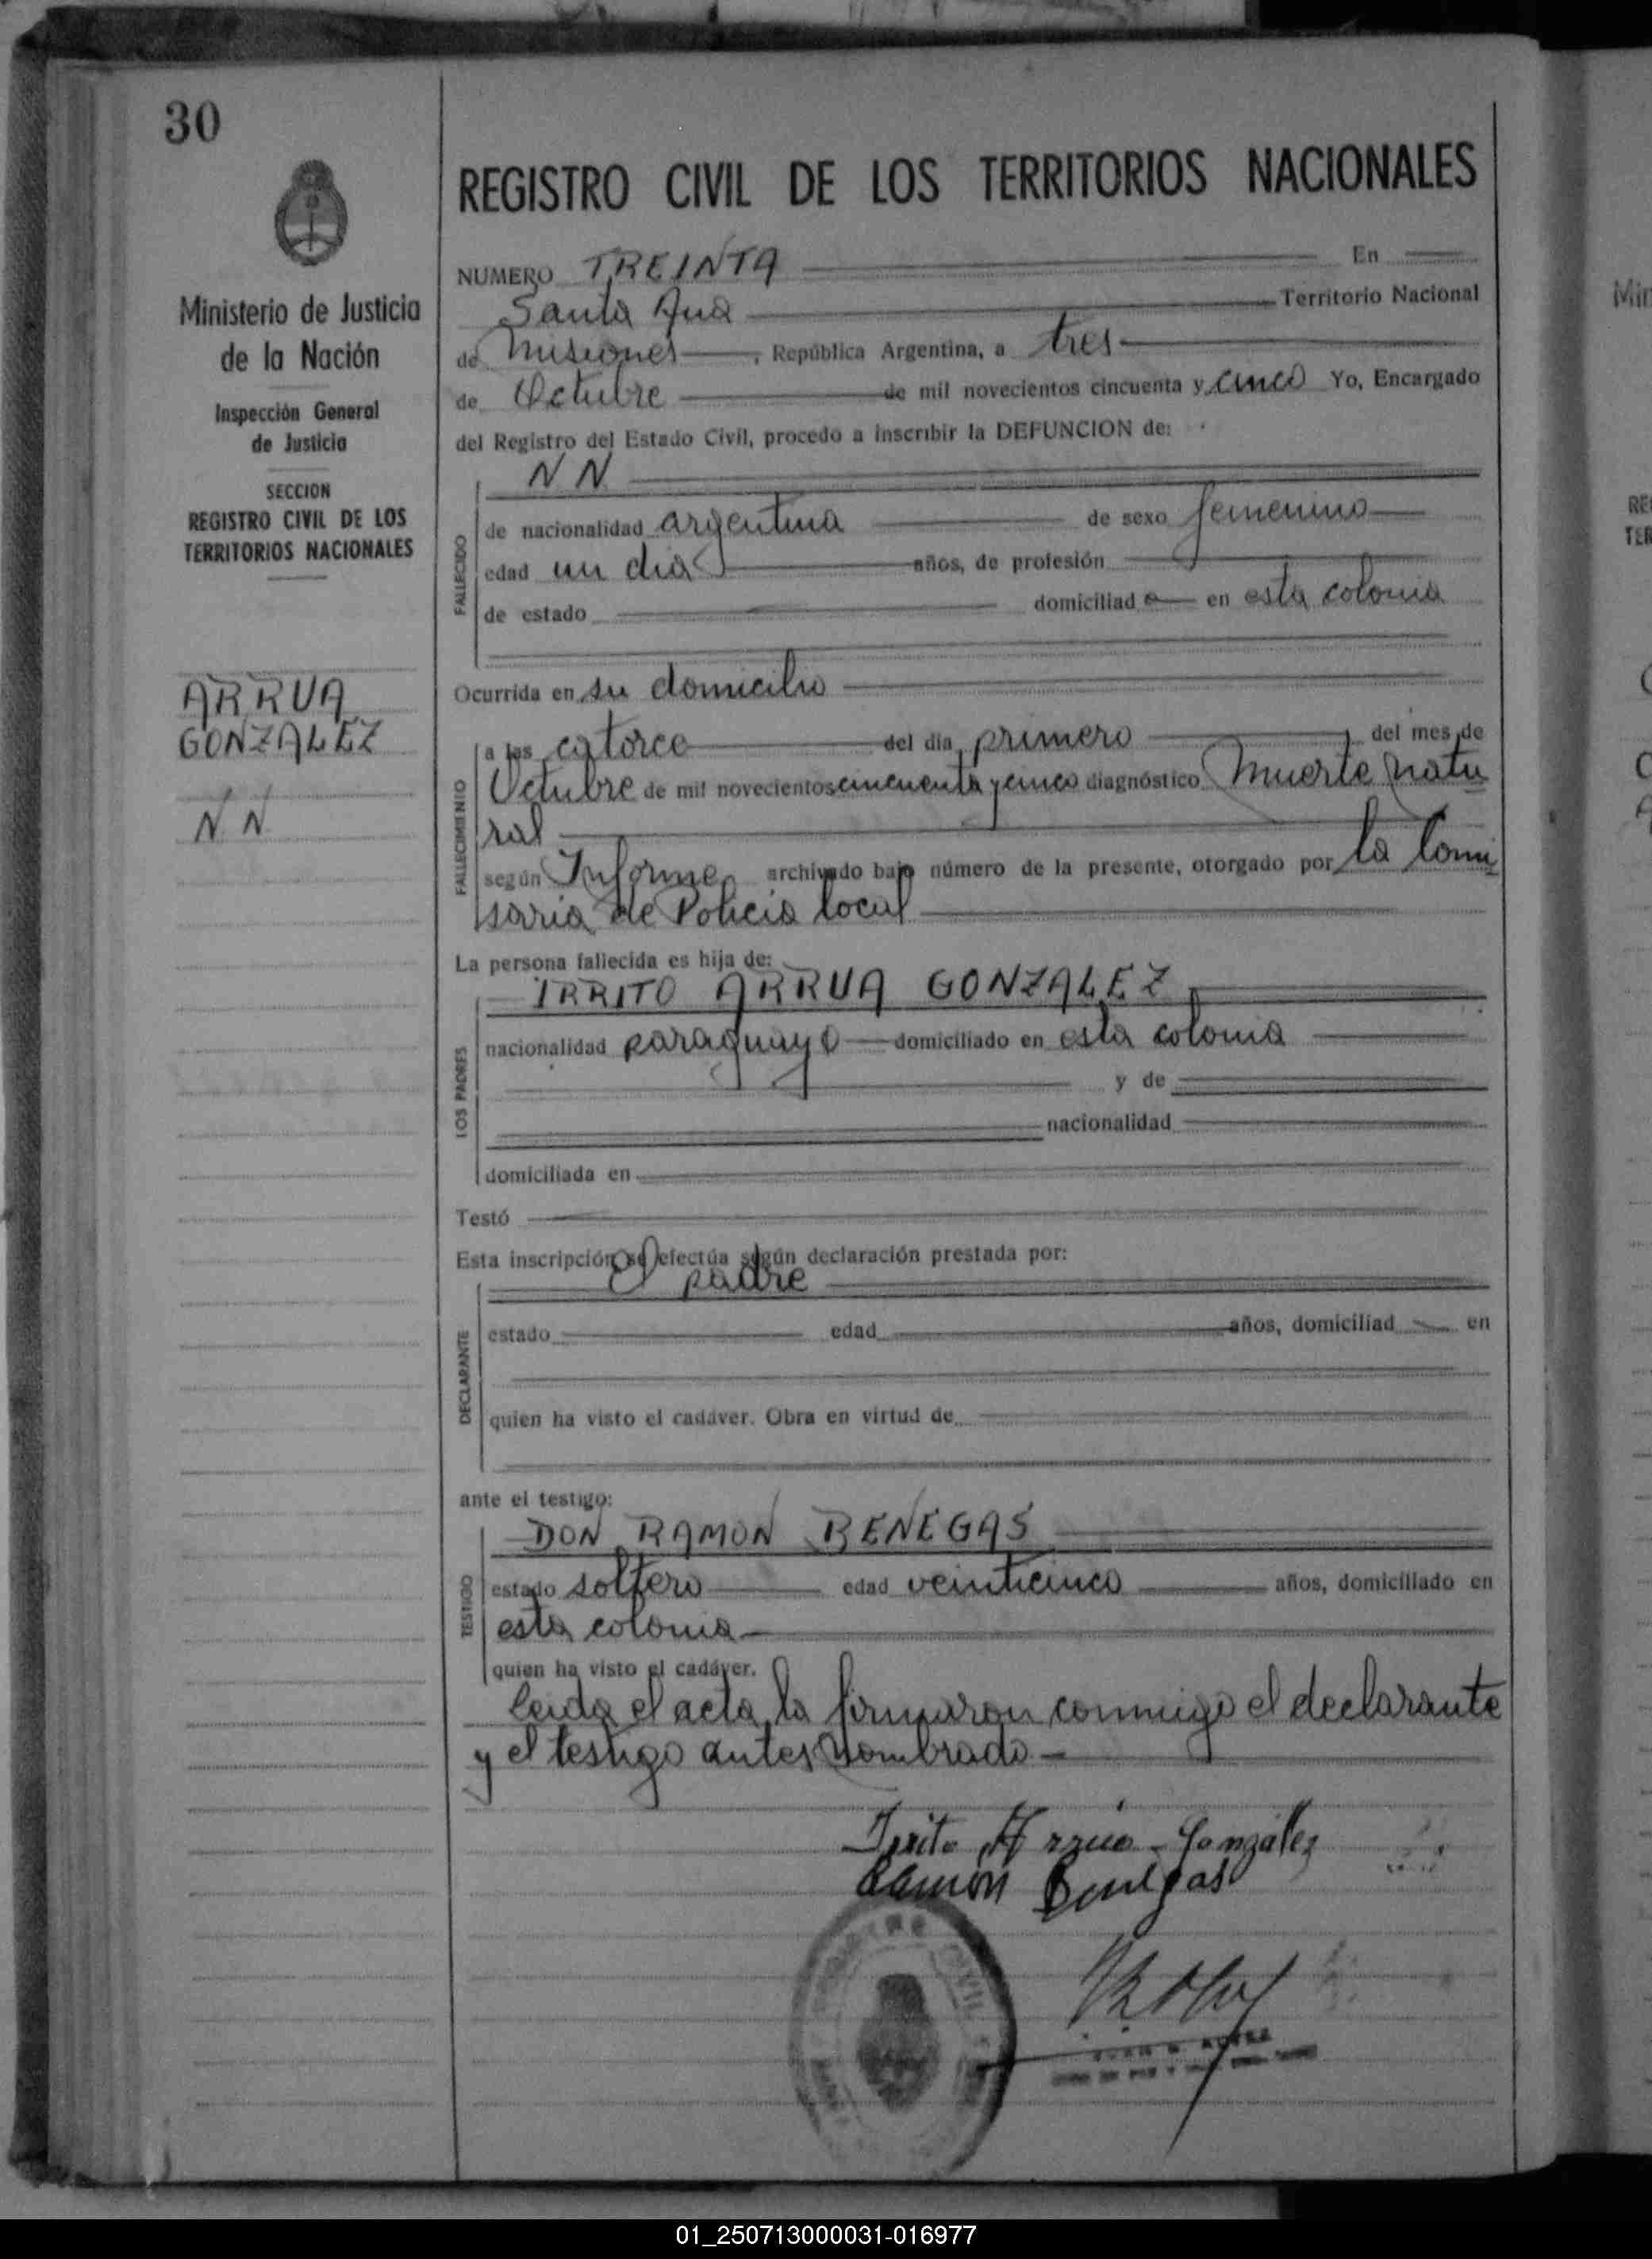 30
Ministerio de Justicia
de la Nación
Inspección General
de Justicia
SECCION
REGISTRO CIVIL DE LOS
TERRITORIOS NACIONALES
ARRUA
GONZALEZ
N N
REGISTRO CIVIL DE LOS TERRITORIOS NACIONALES
NUMERO TREINTA En
Santa Ana Territorio Nacional
de Misiones, República Argentina, a tres
de Octubre de mil novecientos cincuenta y cinco Yo, Encargado
del Registro del Estado Civil, procedo a inscribir la DEFUNCION de:
N N
FALLECIDO
de nacionalidad argentina de sexo femenino
edad un dia años, de profesión
de estado domiciliad o en esta colonia
Ocurrida en su domicilio
FALLECIMIENTO
a las catorce del día primero del mes de
Octubre de mil novecientos cincuenta y cinco diagnóstico Muerte natu
ral
según Informe archivado bajo número de la presente, otorgado por la Comi
saria de Policia local
La persona fallecida es hija de:
IRRITO ARRUA GONZALEZ
LOS PADRES
nacionalidad paraguayo domiciliado en esta colonia
y de
nacionalidad
domiciliada en
Testó
Esta inscripción se efectúa según declaración prestada por:
el padre
DECLARANTE
estado edad años, domiciliad en
quien ha visto el cadáver. Obra en virtud de
ante el testigo:
DON RAMON BENEGAS
TESTIGO
estado soltero edad veinticinco años, domiciliado en
esta colonia
quien ha visto el cadáver.
Leida el acta la firmaron conmigo el declarante
y el testigo antes nombrado
Irrito Arrúa González
Ramón Benegas
01_250713000031-016977